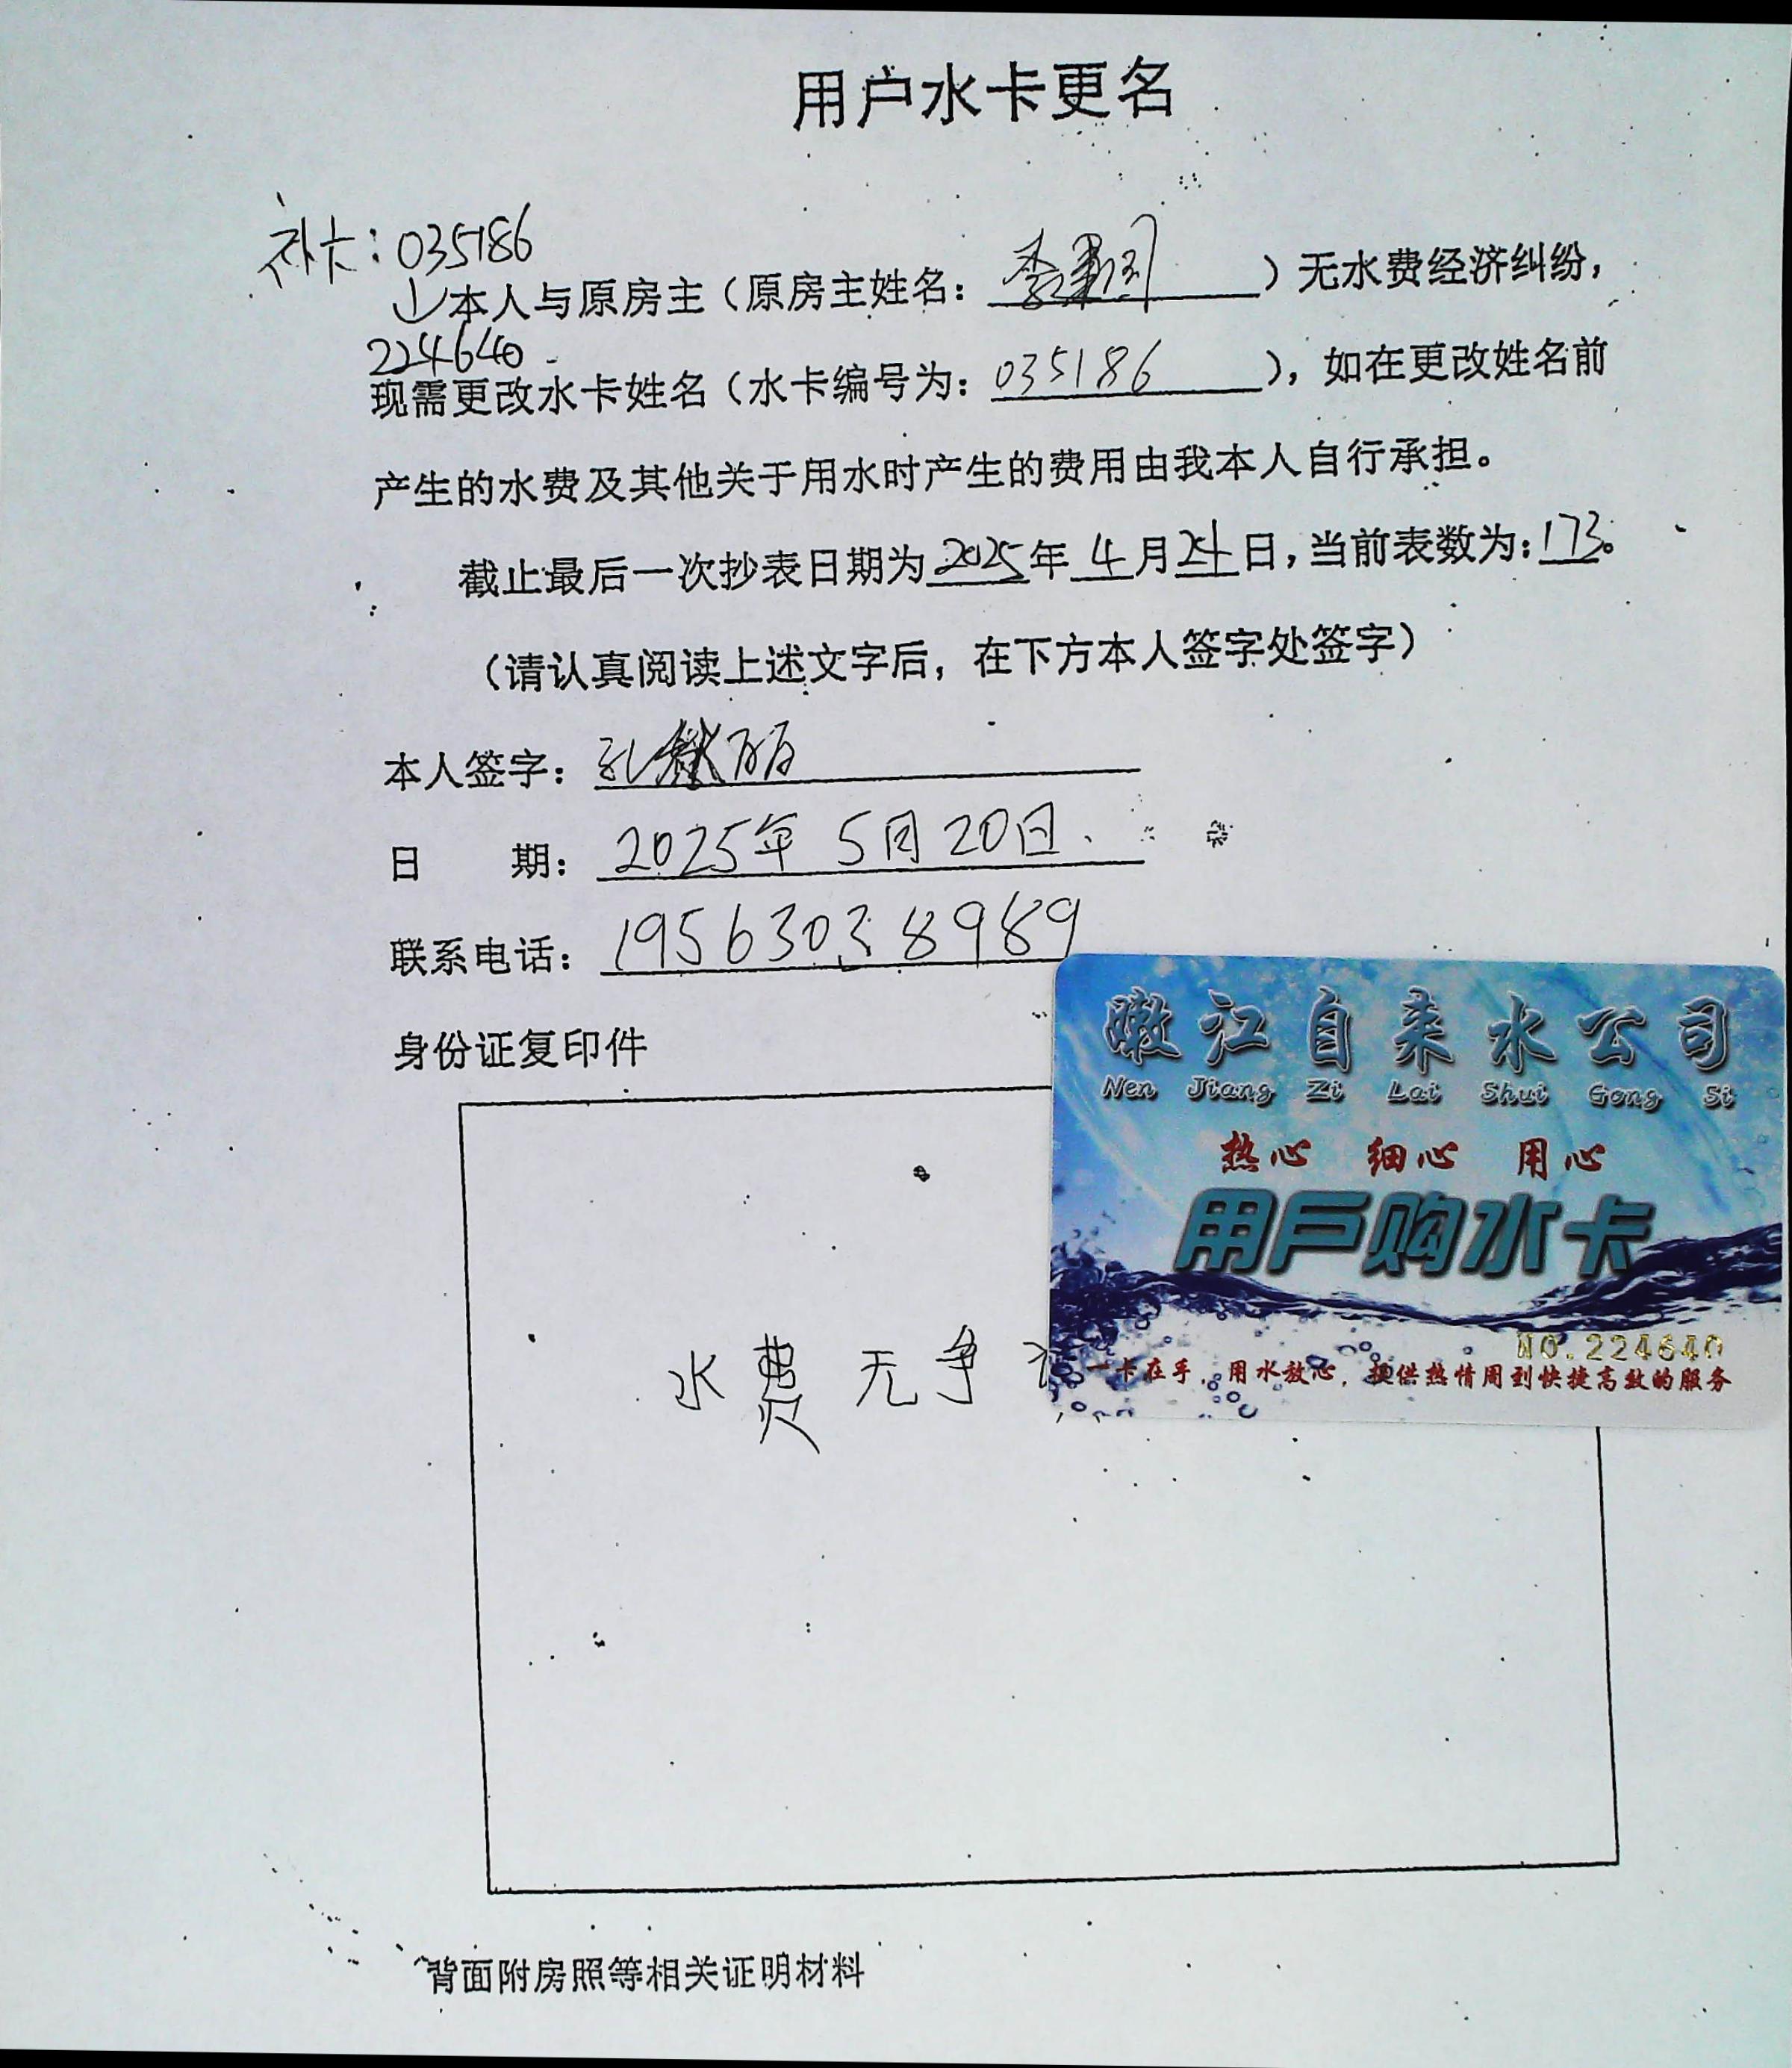 用户水卡更名
补卡：035186
↓
本人与原房主（原房主姓名：李）无水费经济纠纷，
224640
现需更改水卡姓名（水卡编号为：035186），如在更改姓名前
产生的水费及其他关于用水时产生的费用由我本人自行承担。
截止最后一次抄表日期为2025年4月24日，当前表数为：173。
（请认真阅读上述文字后，在下方本人签字处签字）
本人签字：孔 丽
日 期：2025年5月20日.
联系电话：19563038989
身份证复印件
水费无争
嫩江自来水公司
Nen Jiang Zi Lai Shui Gong Si
热心 细心 用心
用户购水卡
NO.224640
一卡在手，用水放心，提供热情周到快捷高效的服务
背面附房照等相关证明材料